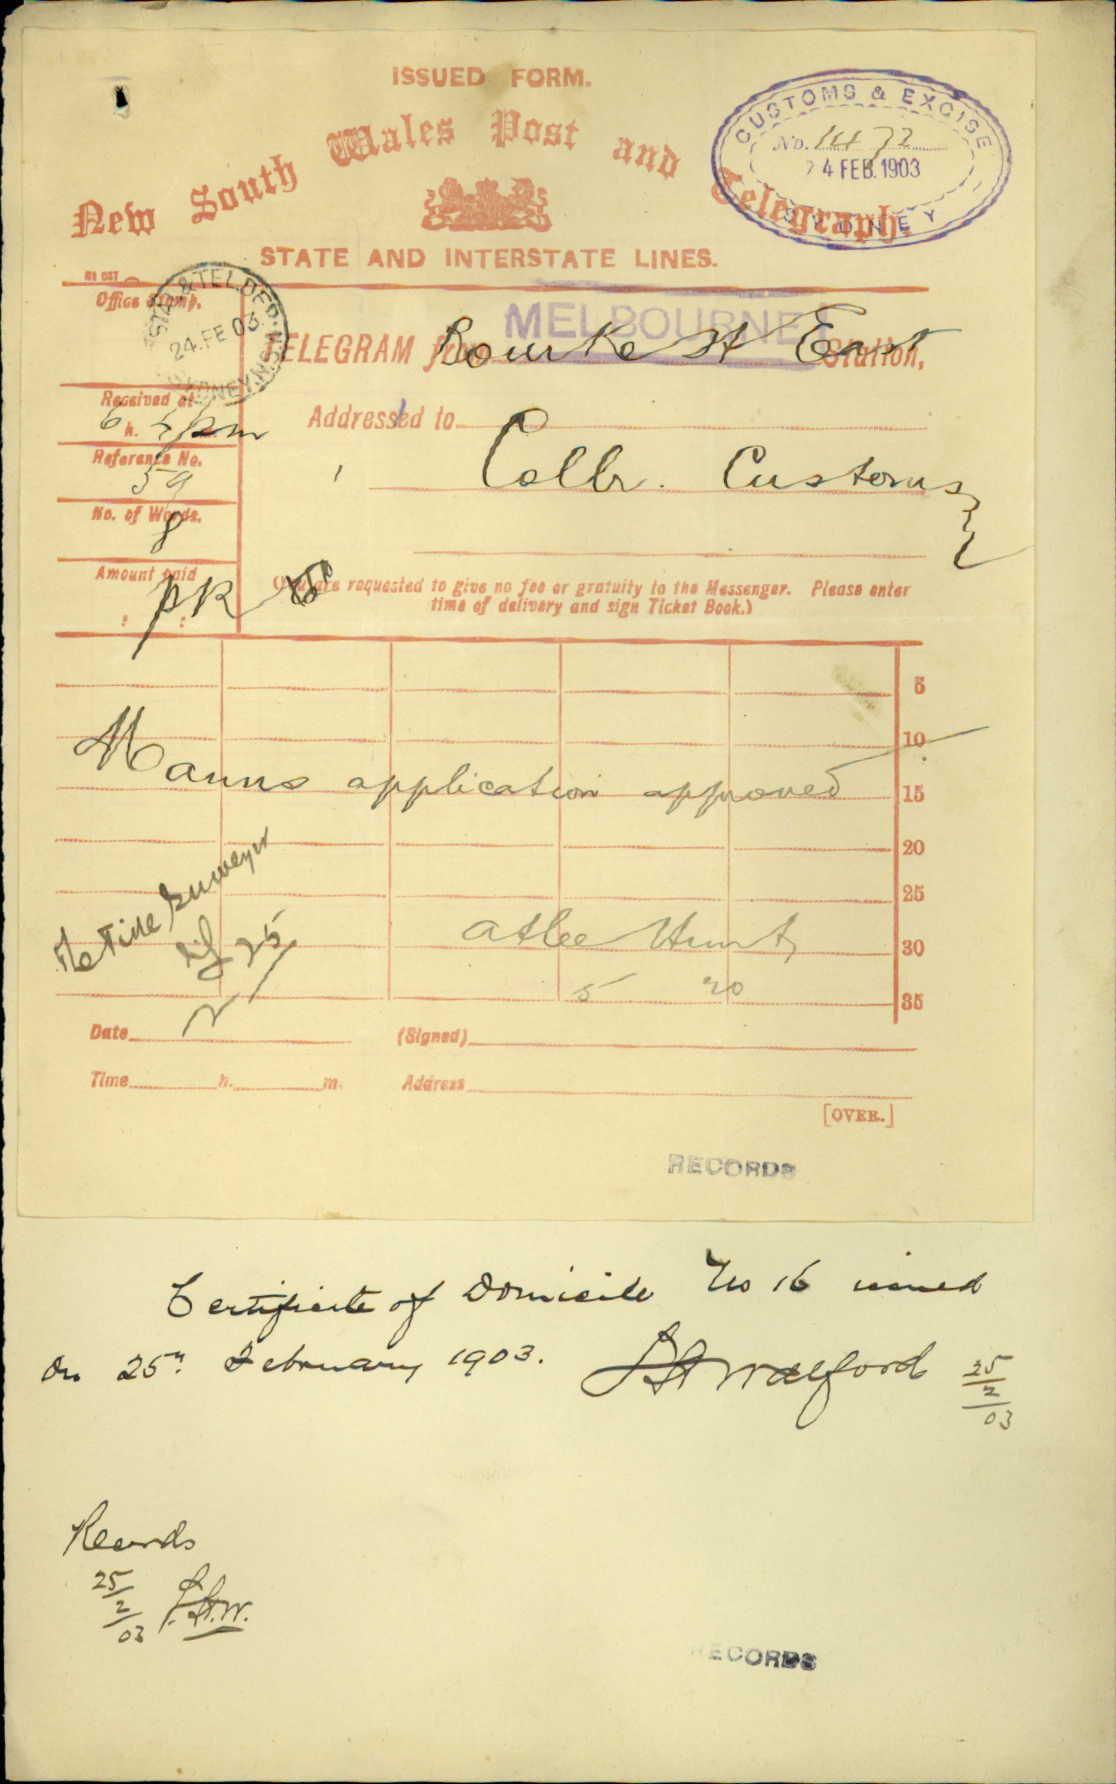 ISSUED FORM.
New South Wales Post and Telegraph.
CUSTOMS & EXCISE
No. 1472
24 FEB. 1903
SYDNEY
STATE AND INTERSTATE LINES.
Office Stamp.
& TEL. DEP.
24. FE 03
SYDNEY. N.S.W
MELBOURNE
TELEGRAM from Bourke St East Station,
Received at
6 h. 5 pm
Addressed to
Reference No.
59
Collr. Customs
No. of Words.
8
Amount paid
PR
(You are requested to give no fee or gratuity to the Messenger. Please enter
time of delivery and sign Ticket Book.)
5
10
Manns application approved
15
20
25
Tide Surveyor
25
2
Atlee Hunt
30
5 20
35
Date (Signed)
Time h. m. Address
[OVER.]
RECORDS
Certificate of Domicile No 16 issued
on 25th February 1903.
25
2
03
Records
25
2
03
RECORDS